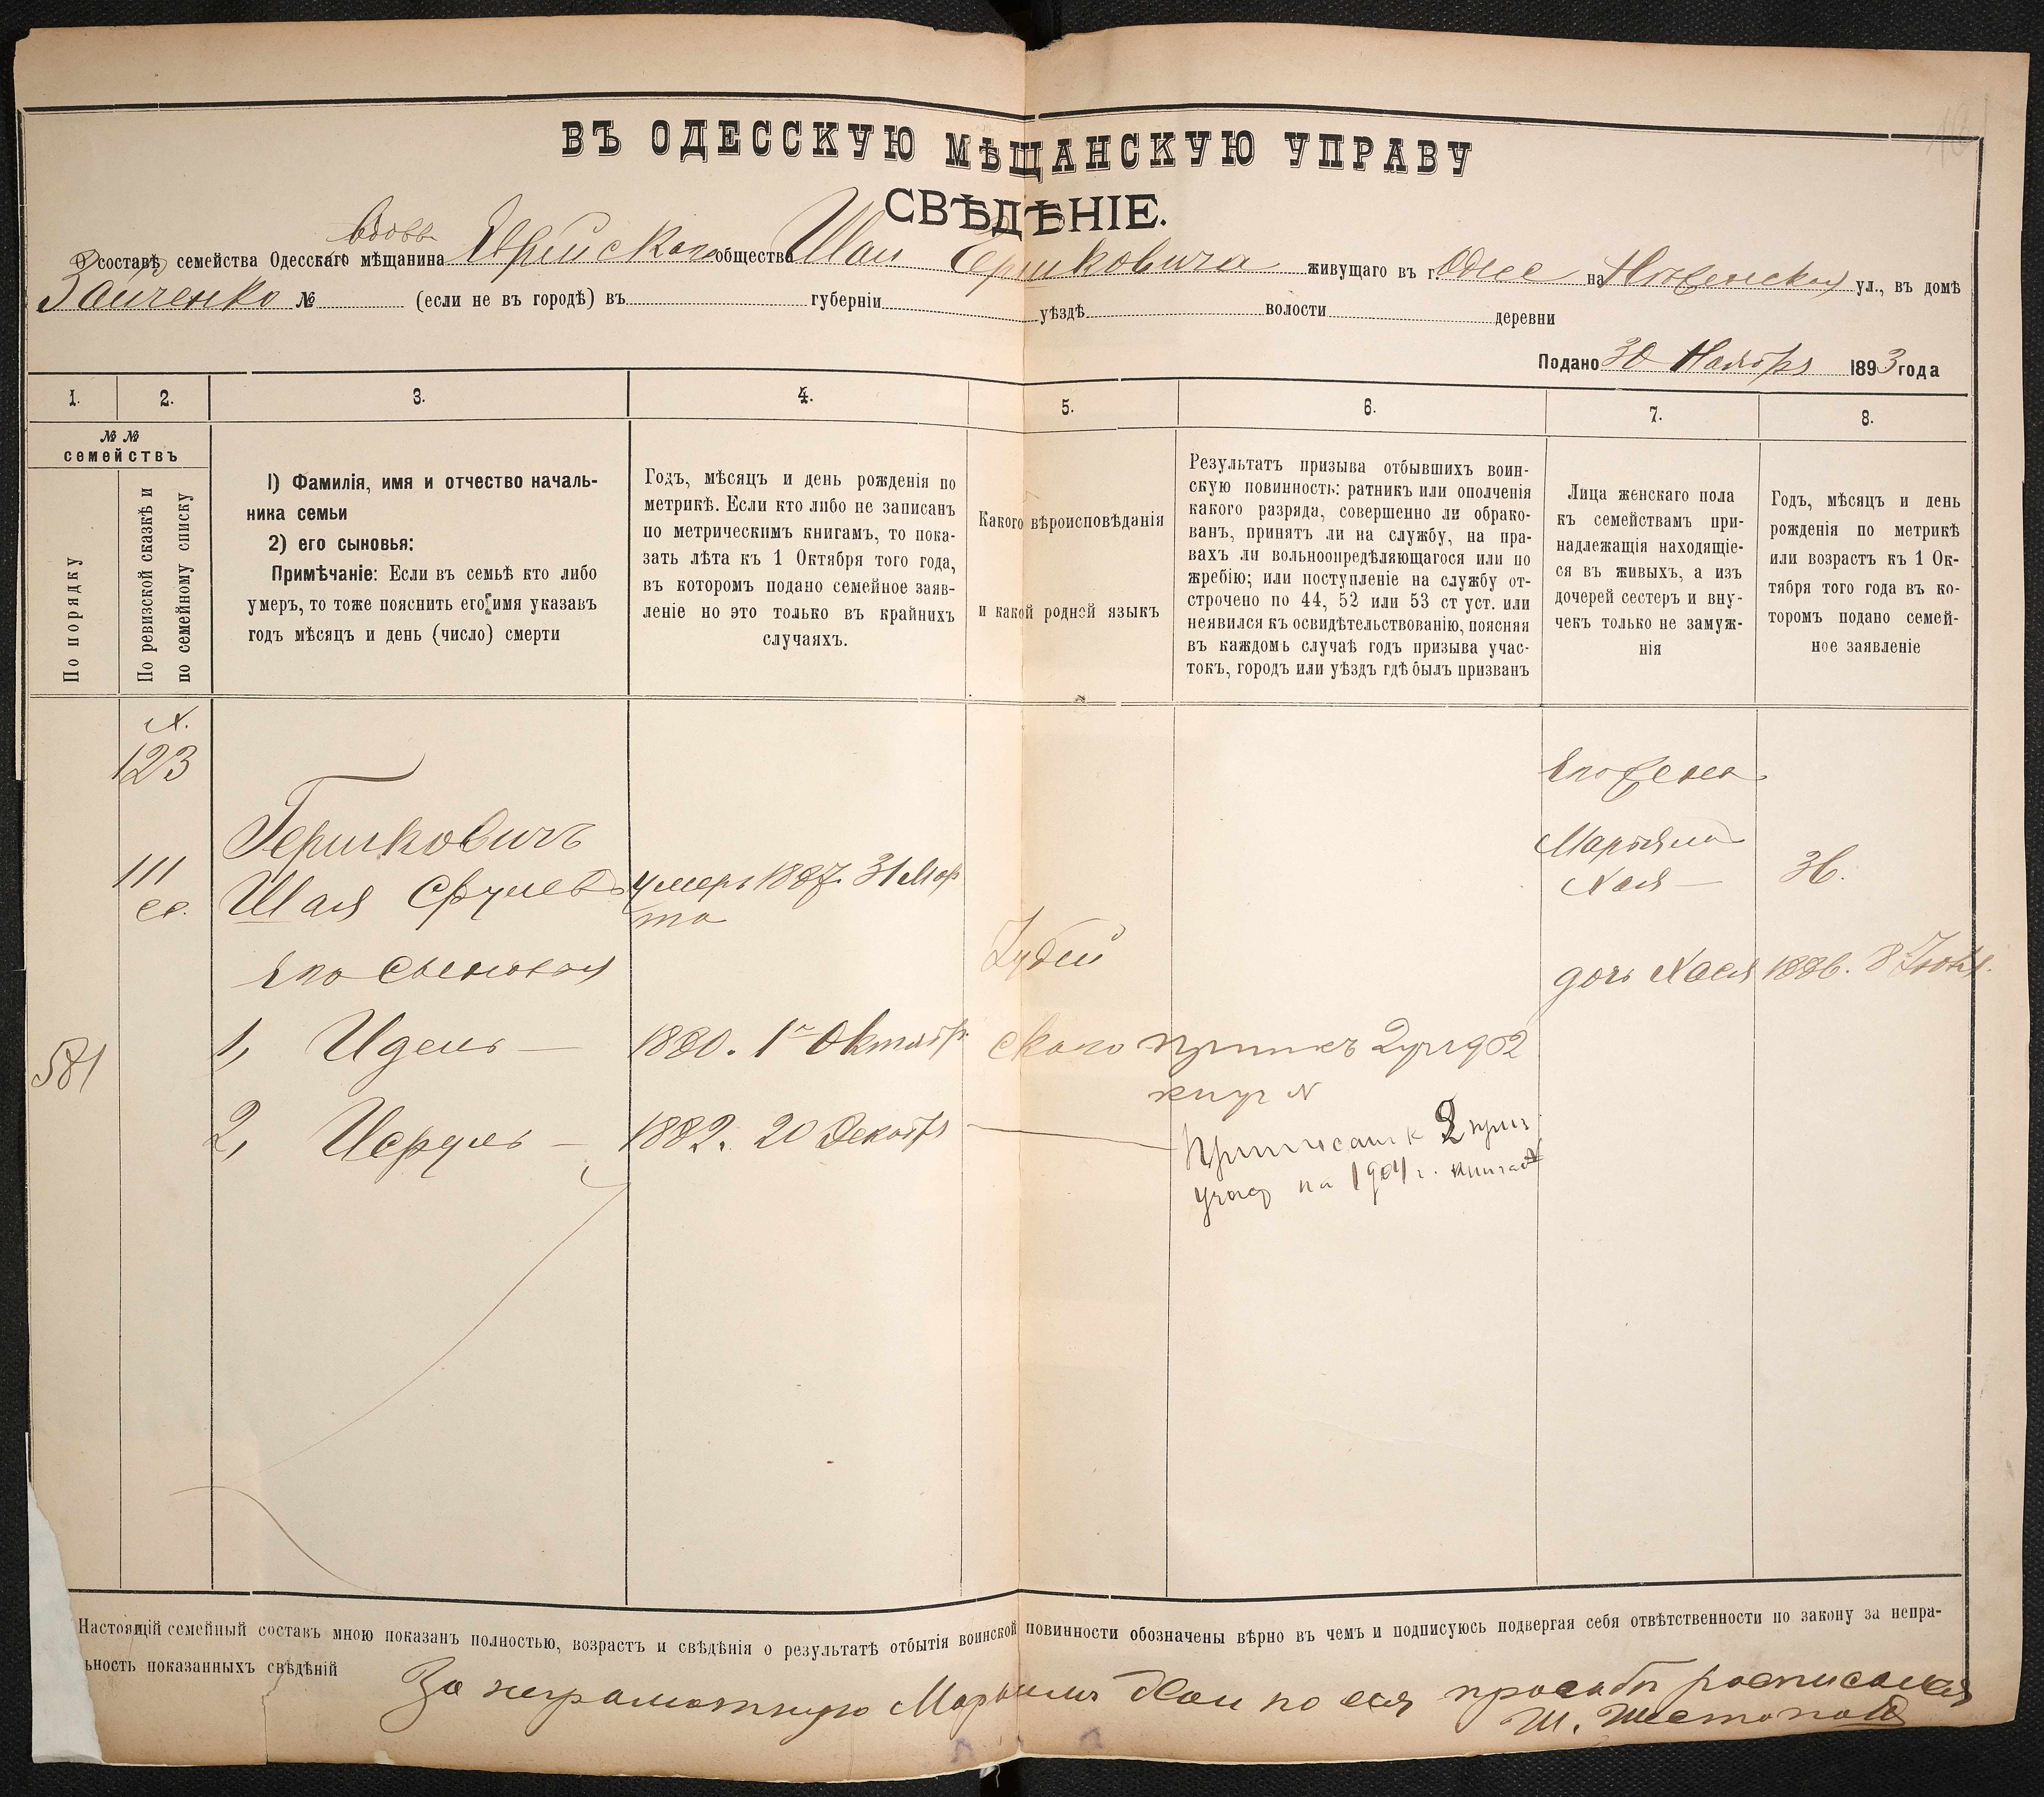 ВЪ ОДЕССКУЮ МѢЩАНСКУЮ УПРАВУ
СВѢДѢНІЕ.
вдовы
О составѣ семейства Одесскаго мѣщанина Еврейскаго общества Шаи Гершковича живущаго въ г. Одес на Нѣженской ул., въ домѣ
Зайченко № (если не въ городѣ) въ губерніи уѣздѣ волости деревни
Подано 30 Ноября 1893 года
1. 2. 3. 4. 5. 6. 7. 8.
№ №
семействъ
По порядку
По ревизской сказкѣ и
по семейному списку
1) Фамилія, имя и отчество началь-
ника семьи
2) его сыновья:
Примѣчаніе: Если въ семьѣ кто либо
умеръ, то тоже пояснить его имя указавъ
годъ мѣсяцъ и день (число) смерти
Годъ, мѣсяцъ и день рожденія по
метрикѣ. Если кто либо не записанъ
по метрическимъ книгамъ, то пока-
зать лѣта къ 1 Октября того года,
въ которомъ подано семейное заяв-
леніе но это только въ крайнихъ
случаяхъ.
Какого вѣроисповѣданія
и какой родной языкъ
Результатъ призыва отбывшихъ воин-
скую повинность: ратникъ или ополченія
какого разряда, совершенно ли обрако-
ванъ, принятъ ли на службу, на пра-
вахъ ли вольноопредѣляющагося или по
жребію; или поступленіе на службу от-
строчено по 44, 52 или 53 ст уст. или
неявился къ освидѣтельствованію, поясняя
въ каждомь случаѣ годъ призыва учас-
токъ, городъ или уѣздъ гдѣ былъ призванъ
Лица женскаго пола
къ семействамъ при-
надлежащія находящіе-
ся въ живыхъ, а изъ
дочерей сестеръ и вну-
чекъ только не замуж-
нія
Годъ, мѣсяцъ и день
рожденія по метрикѣ
или возрастъ къ 1 Ок-
тября того года въ ко-
торомъ подано семей-
ное заявленіе
123
Его жена
Гершковичъ
Марьямъ
111
Шая Срулевъ умеръ 1887. 31 Мар
та
Хая — 36.
Его сыновья
Іудей
дочь Хася 1886. 8 Іюня.
581
1, Идель — 1880. 1го Октябр. скаго
2, Исруль — 1882. 20 Декабря
Приписан к 2 приз
участ на 1904 г. книга
Настоящій семейный составъ мною показанъ полностью, возрастъ и свѣдѣнія о результатѣ отбытія воинской повинности обозначены вѣрно въ чемъ и подписуюсь подвергая себя отвѣтственности по закону за непра-
ьность показанныхъ свѣдѣній
За неграмотную Марьямъ Хаи по ея просьбѣ росписался
Ш. Шестопалъ